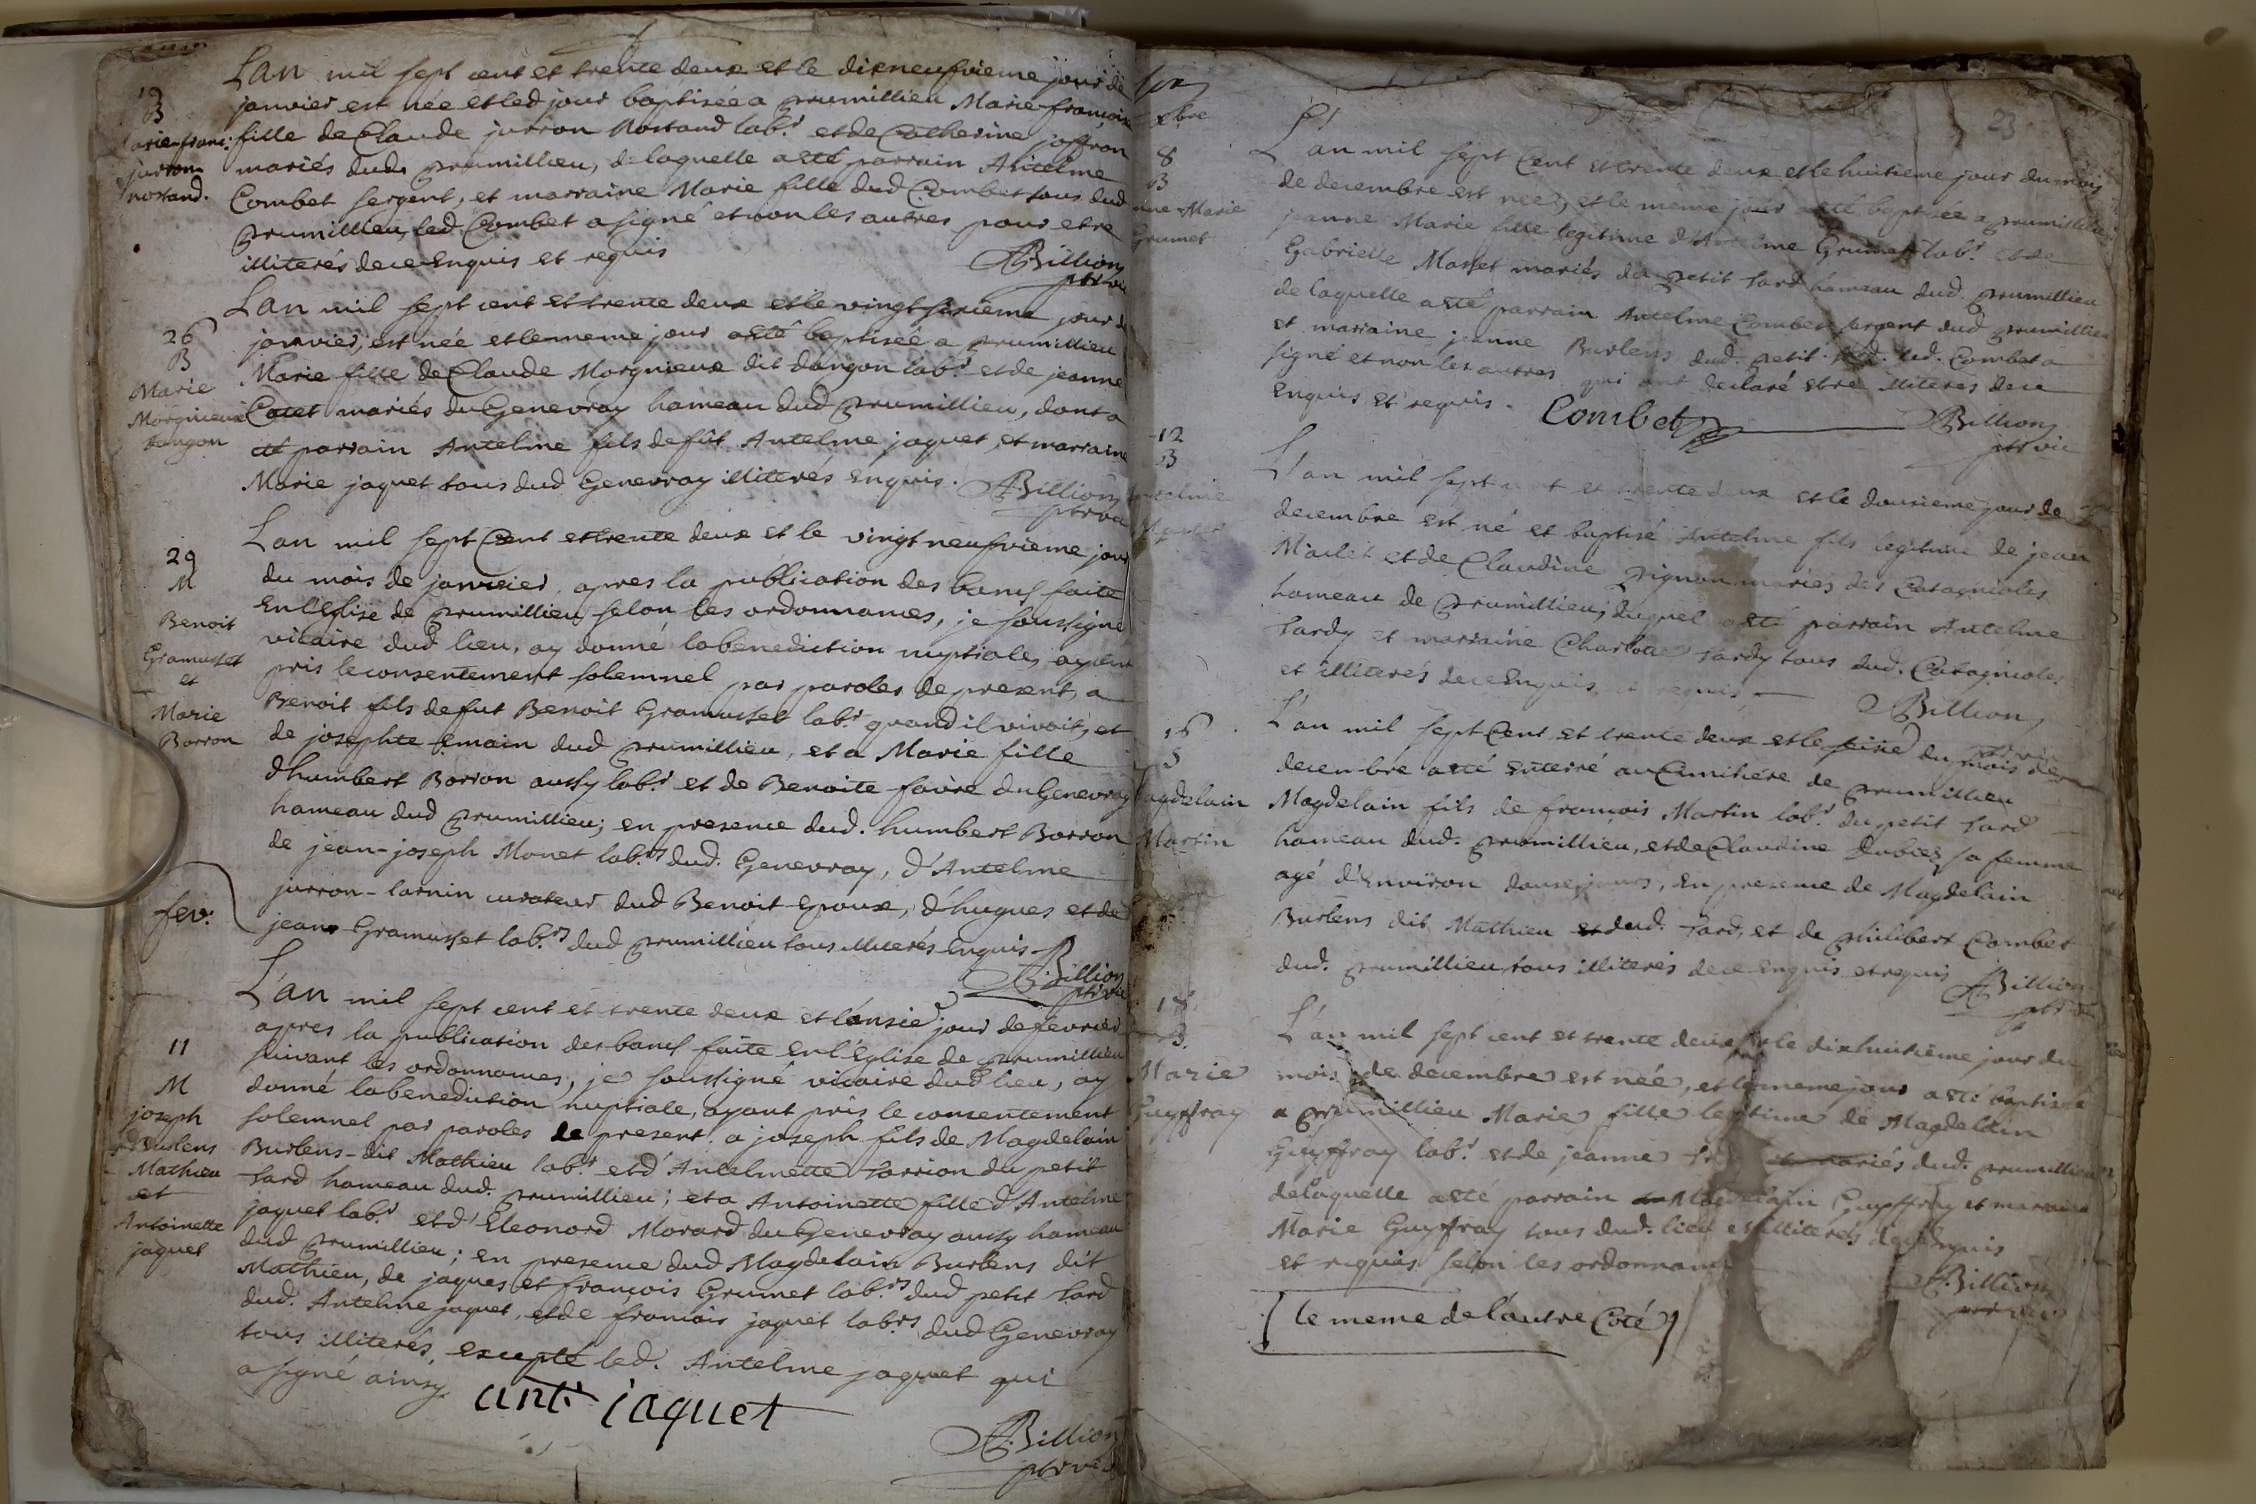 janvier
L'an mil sept cent et trente deux et le dixneufvieme jour de
janvier est née et led jour baptisée a prumillieu Marie-françoise
fille de Claude jurron Rostand lab.r et de Catherine joffron
mariés dud. prumillieu, de laquelle a esté parrain Antelme
Combet sergent, et marraine Marie fille dud Combet tous dud
prumillieu, led. Combet a signé et non les autres pour etre
illiterés de ce Enquis et requis
Billion
ptre vic
19
B
Marie-franc:
jurron
rostand.
L'an mil sept cent et trente deux et le vingt sixieme jour de
janvier, est née et le meme jour a esté baptisée a prumillieu
Marie fille de Claude Morgnieux dit dangon lab.r et de jeanne
Catet mariés du Genevray hameau dud prumillieu, dont a
eté parrain Antelme fils de fût Antelme jaquet, et marraine
Marie jaquet tous dud Genevray illiterés enquis.
Billion
ptre vic
26
B
Marie
Morgnieux
dangon
L'an mil sept Cent et trente deux et le vingt neufvieme jour
du mois de janvier, apres la publication des bancs faite
En l'Eglise de prumillieu selon les ordonnances, je soussigné
vicaire dud lieu, ay donné la benediction nuptiale, ayant
pris le consentement solemnel par paroles de present, a
Benoit fils de fut Benoit Gramusset lab.r quand il vivoit, et
de josephte emain dud prumillieu, et a Marie fille
d'humbert Borron aussy lab.r et de Benoite favre du Genevray
hameau dud prumillieu; en presence dud. humbert Borron
de jean-joseph Monet lab.rs dud. Genevray, d'Antelme
jurron-larnin curateur dud Benoit Epoux, d'hugues et de
jean Gramusset lab.rs dud prumillieu tous illiterés Enquis
Billion
ptre vic
29
M
Benoit
Gramusset
et
Marie
Borron
fev.r
L'an mil sept cent et trente deux et l'onzie. jour de fevrier
apres la publication des bancs faite en l'Eglise de prumillieu
suivant les ordonnances, je soussigné vicaire dud lieu, ay
donné la benediction nuptiale, ayant pris le consentement
solemnel par paroles de present, a joseph fils de Magdelain
Burlens-dit Mathieu lab.r et d'Antelmette Sarrion du petit
Sard hameau dud. prumillieu; et a Antoinette fille d'Antelme
jaquet lab.r et d'Eleonord Morard du Genevray aussy hameau
dud prumillieu; en presence dud Magdelain Burlens dit
Mathieu, de jaques et françois Grumet lab.rs dud petit Sard
dud. Antelme jaquet, et de francois jaquet lab.rs dud Genevray
tous illiterés, excepté led. Antelme jaquet qui
a signé ainsy
ant. jaquet
Billion
ptre vic
11
M
joseph
Burlens
Mathieu
et
Antoinette
jaquet
23
xbre
L'an mil sept Cent et trente deux et le huitieme jour du mois
de decembre est née, et le meme jour a esté baptisée a prumillieu
jeanne Marie fille legitime d'Antelme Grumet lab.r et de
Gabrielle Masset mariés du petit Sard hameau dud. prumillieu
de laquelle a esté parrain Antelme Combet sergent dud prumillieu
et marraine jeanne Burlens dud. petit Sard. led. Combet a
signé et non les autres qui ont declaré etre illiteres de ce
enquis et requis.
Combet
Billion
ptre vic
8
B
jeanne Marie
Grumet
L'an mil sept cent et trente deux et le douzieme jour de
decembre est né et baptisé Antelme fils legitime de jean
Mailet et de Claudine pignon mariés des Catagnioles
hameau de prumillieu, duquel a esté parrain Antelme
Tardy et marraine Charlotte Tardy tous dud. Catagnioles
et illiterés de ce Enquis et requis
Billion
ptre vic
12
B
Antelme
L'an mil sept Cent et trente deux et le seize du mois de
decembre a esté enterré au Cimitiére de prumillieu
Magdelain fils de francois Martin lab.r du petit Sard
hameau dud. prumillieu, et de Claudine Dubiez sa femme
agé d'Environ douze jours, en presence de Magdelain
Burlens dit Mathieu dud. Sard, et de philibert Combet
dud. prumillieu tous illiterés de ce enquis et requis
Billion
ptre vic
16
S
Magdelain
Martin
L'an mil sept cent et trente deux et le dixhuitiéme jour du
mois de decembre est née, et le meme jour a esté baptisée
a prumillieu Marie fille legitime de Magdelain
Guyffray lab.r et de jeanne mariés dud. prumillieu
de laquelle a esté parrain Magdelain Guyffray et marraine
Marie Guyffray tous dud. lieu et illiterés de ce Enquis
et requis selon les ordonnances
Billion
ptre vic
18
B
Marie
Guyffray
le meme de l'autre Coté